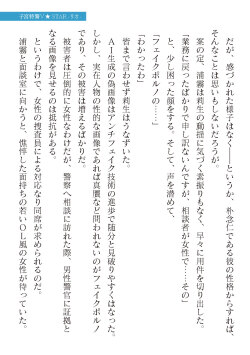 だが、感づかれた様子はなく――というか、朴念仁である彼の性格からすれば、
そんなことは思いもしないだろうが。
案の定、浦霧は莉生の動揺に気づく素振りもなく、早々に用件を切り出した。
「業務に戻ったばかりで申し訳ないんですが、相談者が女性で……その」
と、少し困った顔をする。そして、声を潜めて、
「フェイクポルノの……」
「わかったわ」
皆まで言わせず莉生はうなずいた。
ＡＩ生成の偽画像はアンチフェイク技術の進歩で随分と見破りやすくはなった。
しかし、実在人物の性的な画像であれば真贋など問われないのがフェイクポルノ
だ。それだけ被害者は増えるばかりだ。
被害者は圧倒的に女性なわけだが、警察へ相談に訪れた際、男性警官に証拠と
なる画像を見せるのは抵抗がある。
というわけで、女性の捜査員による対応なり同席が求められるのだ。
浦霧と面談室に向かうと、憔悴した面持ちの若いＯＬ風の女性が待っていた。